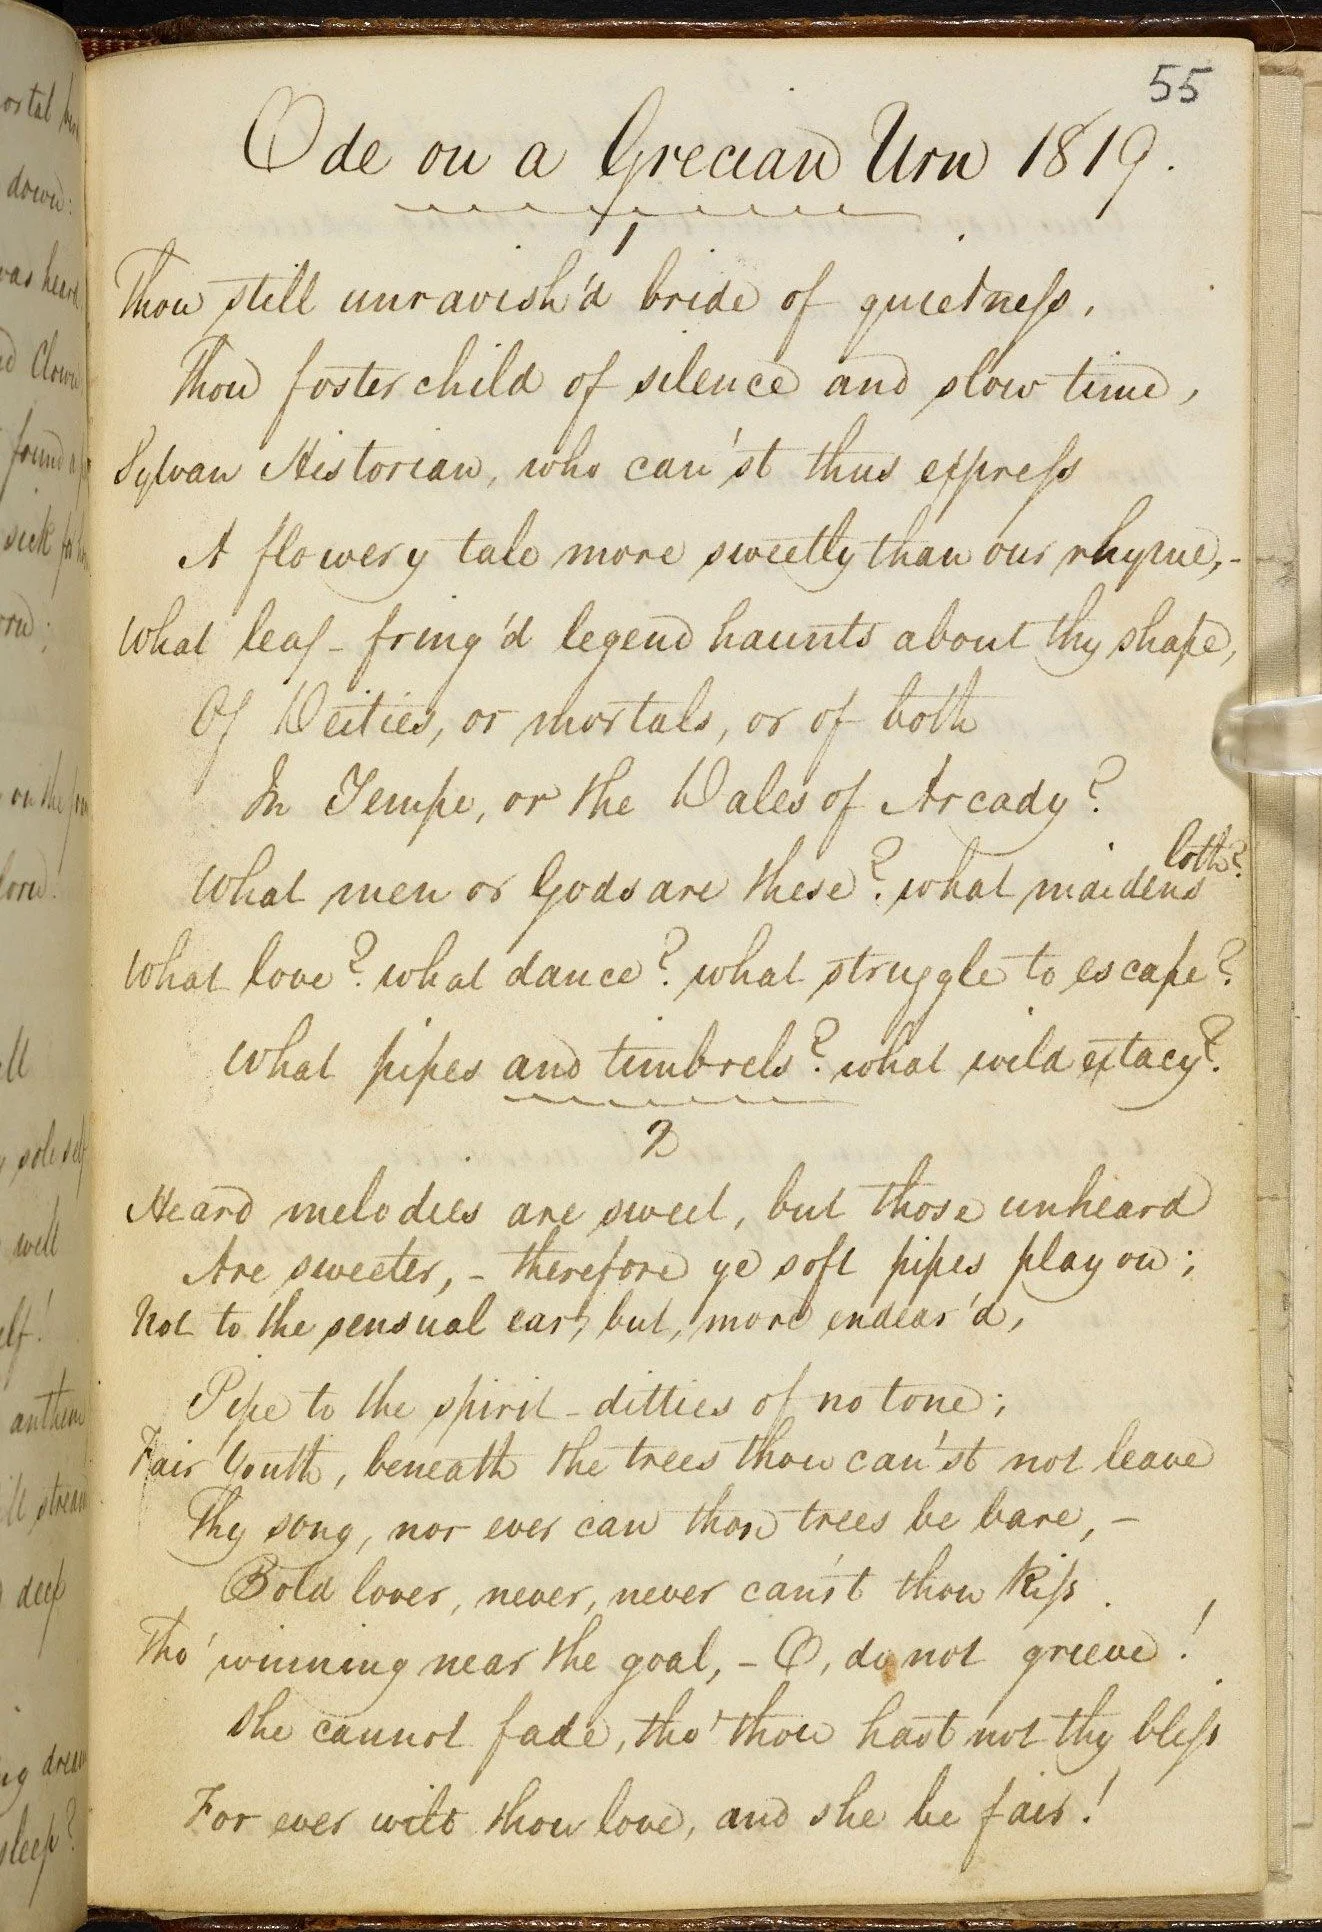 55
Ode on a Grecian Urn 1819.
1
Thou still unravish'd bride of quietneſs,
Thou foster child of silence and slow time,
Sylvan Historian, who can'st thus expreſs
A flowery tale more sweetly than our rhyme,-
What leaf-fring'd legend haunts about thy shape,
Of Deities, or mortals, or of both
In Tempe, or the Dales of Arcady?
loth?
What men or Gods are these? what maidens
What love? what dance? what struggle to escape?
What pipes and timbrels? what wild extacy?
2
Heard melodies are sweet, but those unheard
Are sweeter,- therefore ye soft pipes play on;
Not to the sensual ear, but, more endear'd,
Pipe to the spirit-ditties of no tone;
Fair Youth, beneath the trees thou can'st not leave
Thy song, nor ever can those trees be bare,-
Bold lover, never, never can'st thou Kiſs
Tho' winning near the goal,- O, do not grieve!
She cannot fade, tho' thou hast not thy bliſs
For ever wilt thou love, and she be fair!
down:
was heard
Clown
found a
sick for
on the
sole self
well
elf!
anthem
stream
deep
sleep?